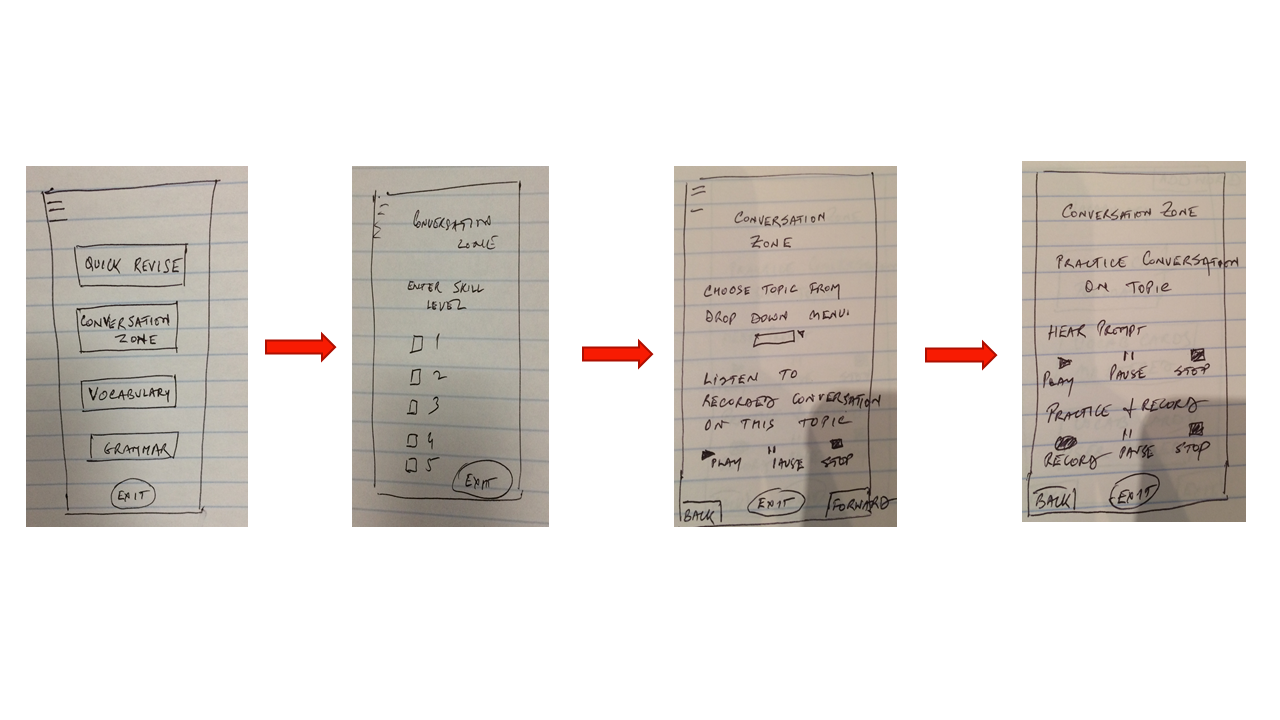 QUICK REVISE
CONVERSATION
ZONE
VOCABULARY
GRAMMAR
EXIT
CONVERSATION
ZONE
ENTER SKILL
LEVEL
1
2
3
4
5
EXIT
CONVERSATION
ZONE
CHOOSE TOPIC FROM
DROP DOWN MENU.
LISTEN TO
RECORDED CONVERSATION
ON THIS TOPIC
PLAY PAUSE STOP
BACK EXIT FORWARD
CONVERSATION ZONE
PRACTICE CONVERSATION
ON TOPIC
HEAR PROMPT
PLAY PAUSE STOP
PRACTICE & RECORD
RECORD PAUSE STOP
BACK EXIT